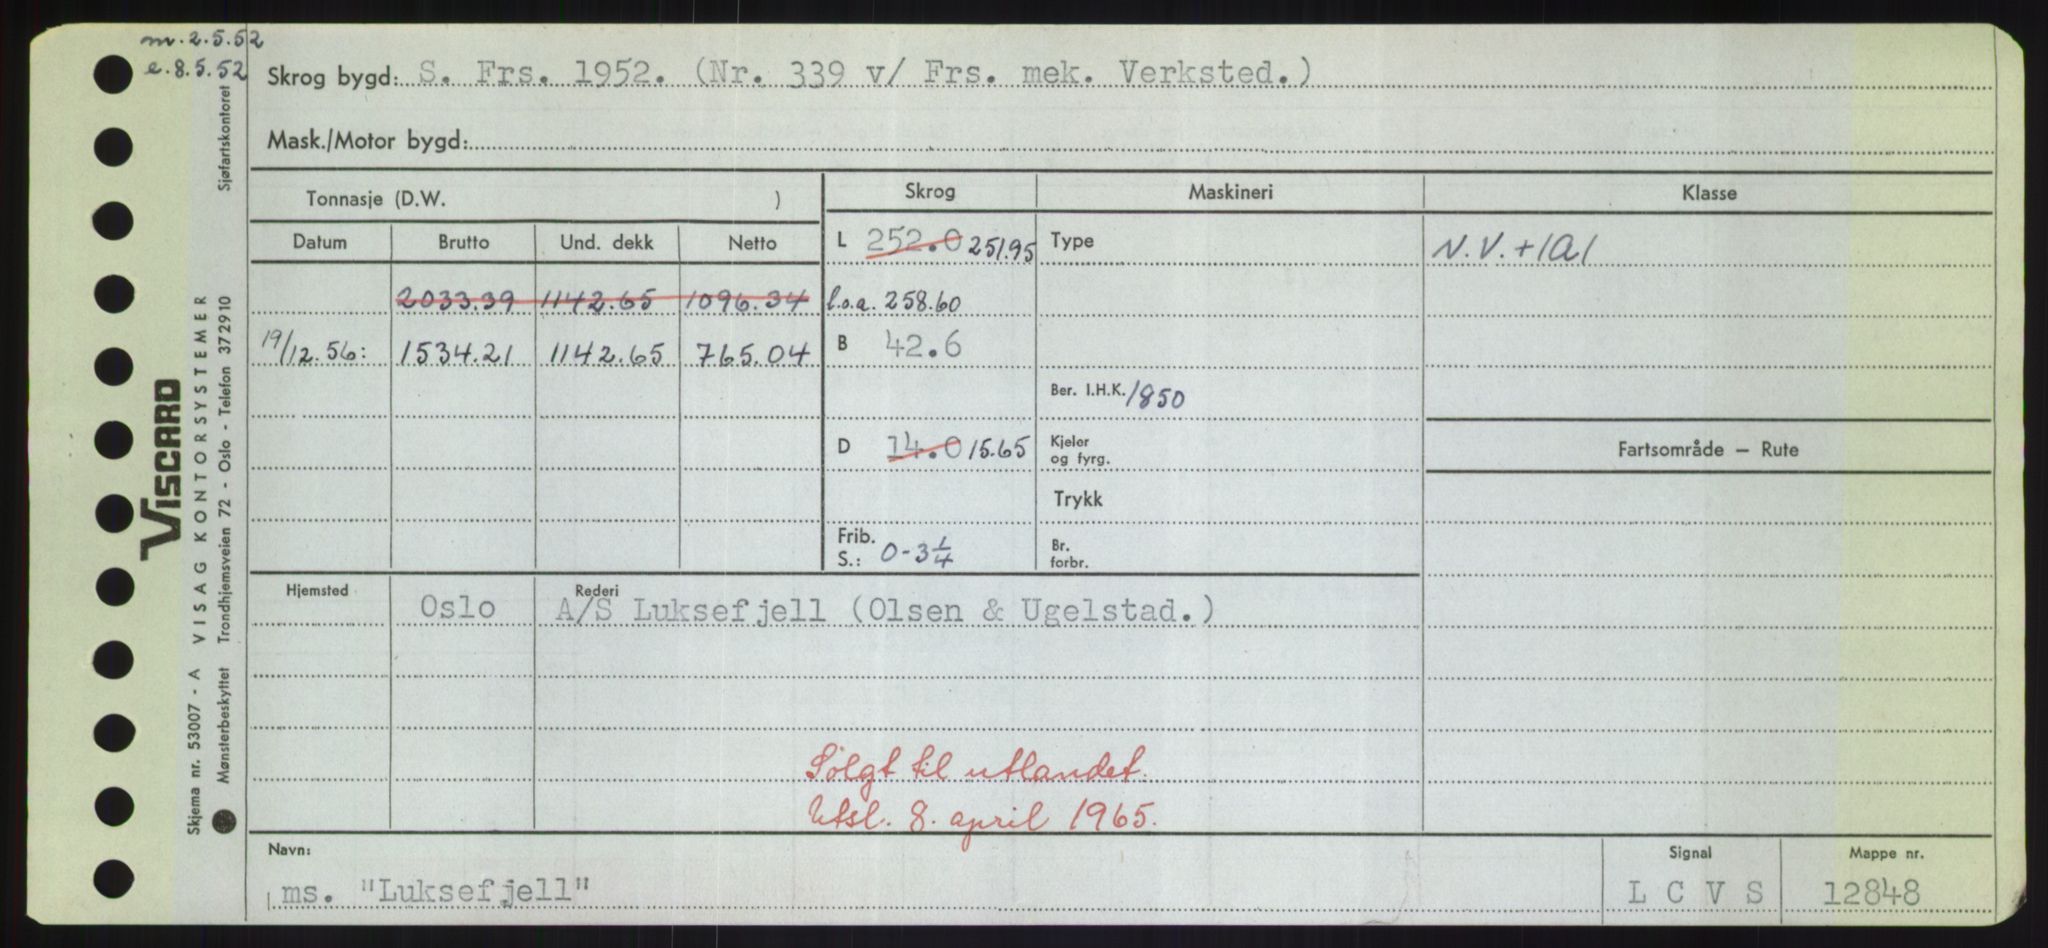 m. 2.5.52
e. 8.5.52
Skrog bygd: S. Frs. 1952. (Nr. 339 v/ Frs. mek. Verksted.)
Mask./Motor bygd:
Tonnasje (D.W. )
Skrog Maskineri Klasse
Datum Brutto Und. dekk Netto
L 252.0 251.95 Type N.V. +1A1
2033.39 1142.65 1096.34 l.o.a. 258.60
19/12.56: 1534.21 1142.65 765.04 B 42.6
Ber. I.H.K. 1850
D 14.0 15.65 Kjeler
og fyrg.
Fartsområde – Rute
Trykk
Frib.
S.: 0-3 1/4
Br.
forbr.
Hjemsted Rederi
Oslo A/S Luksefjell (Olsen & Ugelstad.)
Solgt til utlandet.
Utsl. 8. april 1965.
Navn: Signal Mappe nr.
ms. "Luksefjell" L C V S 12848
VISCARD
Skjema nr. 53007 - A VISAG KONTORSYSTEMER
Mønsterbeskyttet Trondhjemsveien 72 - Oslo - Telefon 372910 Sjøfartskontoret